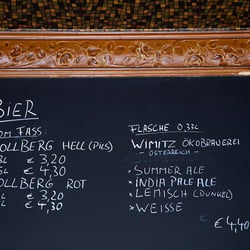 BIER
OM FASS:
OLLBERG HELL (PILS)
L € 3,20
L € 4,30
OLLBERG ROT
L € 3,20
L € 4,30
FLASCHE 0,33L
WIMITZ ÖKOBRAUEREI
- ÖSTERREICH -
• SUMMER ALE
• INDIA PALE ALE
• LEMISCH (DUNKEL)
• WEISSE
€ 4,40